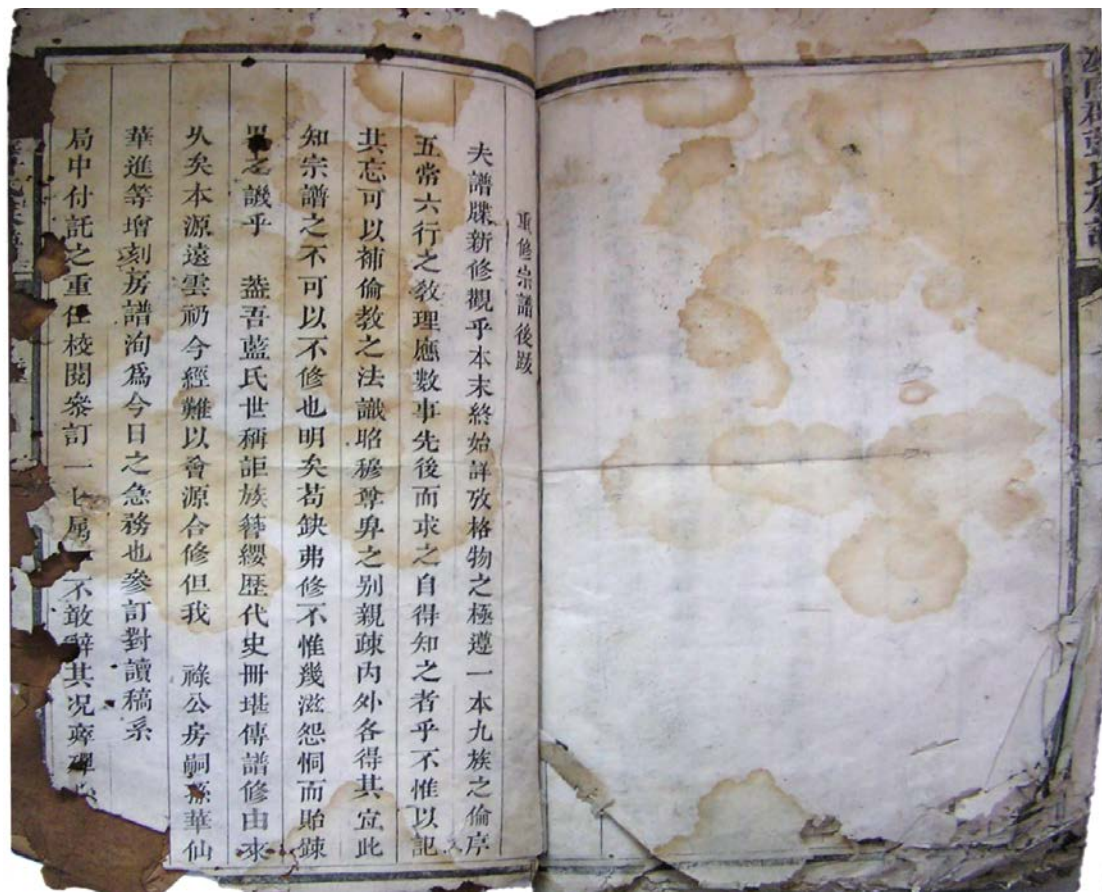 重修宗譜後跋
夫譜牒新修觀乎本末終始詳攷格物之極遵一本九族之倫序
五常六行之敎理應數事先後而求之自得知之者乎不惟以記
其忘可以補倫教之法識昭穆尊卑之别親疎内外各得其宜此
知宗譜之不可以不修也明矣苟缺弗修不惟幾滋怨恫而貽踈
之譏乎 葢吾藍氏世稱詎族簪纓歷代史冊堪傳譜修由來
乆矣本源遠雲礽今經難以會源合修但我 祿公房嗣孫華仙
華進等增刻房譜洵爲今日之急務也參訂對讀稿系
局中付託之重任校閱叅訂一七属不敢辭其况
氏族譜